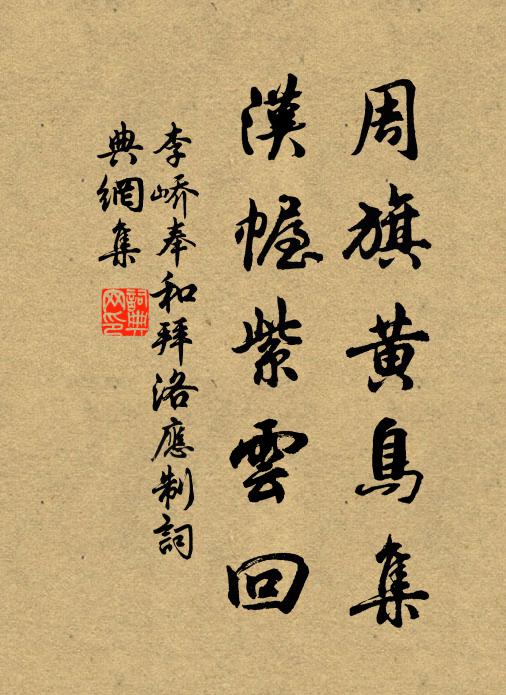 周旗黄鳥集
漢幄紫雲回
李嶠奉和拜洛應制詞
典網集
詞典網印